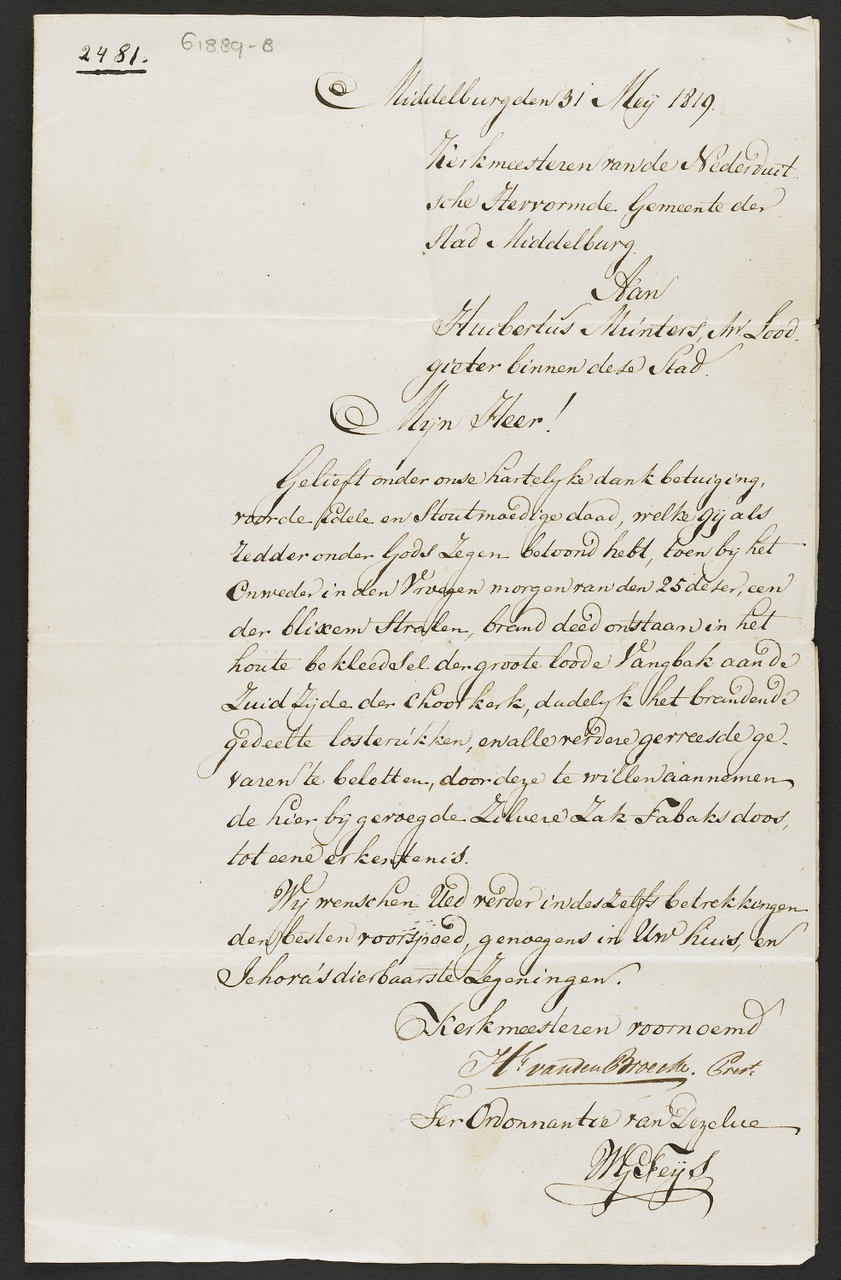 2481.
61889-8
Middelburg den 31 Meij 1819.
Kerkmeesteren van de Nederduit
sche Hervormde Gemeente der
Stad Middelburg.
Aan
Huibertus Munters, Mr Lood.
gieter binnen dese Stad.
Mijn Heer!
Gelieft onder onse hartelyke dank betuiging,
voor de Edele en Stoutmoedige daad, welke gij als
redder onder Gods Zegen betoond hebt, toen bij het
Onweder in den Vroegen morgen van den 25 deser, een
der blixem Stralen, brand deed ontstaan in het
houte bekleedsel der groote loode Vangbak aan de
Zuid Zijde der Choor kerk, dadelyk het brandende
gedeelte los te rukken, en alle verdere gevreesde ge-
varen te beletten, door deze te willen aannemen
de hier bij gevoegde Zilvere Zak Tabaks doos,
tot eene erkentenis.
Wij wenschen Ued verder in deszelfs betrekkingen
den besten voorspoed, genoegens in Uw huis, en
Jehova's dierbaarste Zegeningen.
Kerkmeesteren voornoemd
Hk van den Broecke. Prest.
Ter Ordonnantie van Dezelve
WJ Feijs